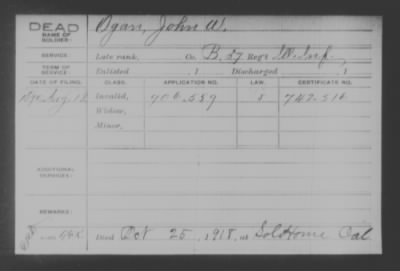 DEAD
NAME OF SOLDIER:
Ogan, John W.
SERVICE:
Late rank, Co. B, 57 Reg't Ill. Inf.
TERM OF SERVICE:
Enlisted , 1 Discharged , 1
DATE OF FILING. CLASS. APPLICATION NO. LAW. CERTIFICATE NO.
Aug. 18 Invalid, 906.559 742.516
Widow,
Minor,
ADDITIONAL SERVICES:
REMARKS:
Died Oct 25, 1918, at Sol Home Cal